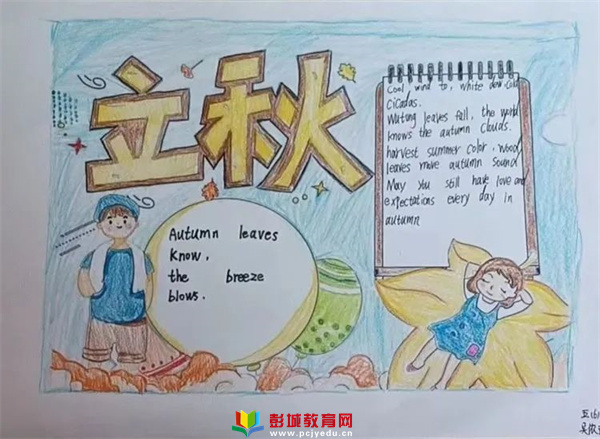 立秋
Autumn leaves
know,
the breeze
blows.
Cool wind to, white dew
Cicadas.
Wutong leaves fall, the world
knows the autumn clouds.
harvest summer color, wood
leaves move autumn sound
May you still have love and
expectations every day in
autumn
彭城教育网
www.pcjyedu.cn